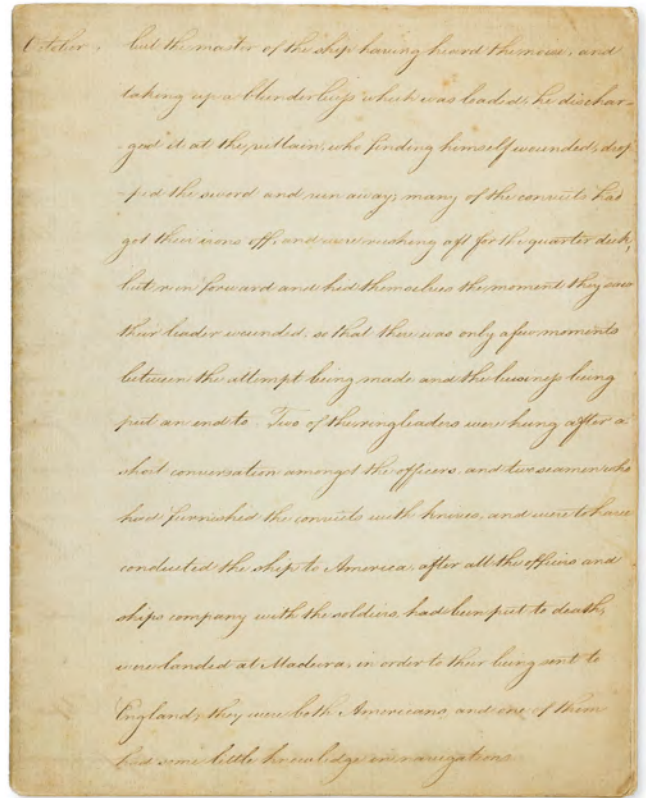 October. but the master of the ship having heard the noise, and
taking up a blunderbuss which was loaded, he dischar-
-ged it at the villain, who finding himself wounded, drop
-ped the sword and run away; many of the convicts had
got their irons off, and were rushing aft for the quarter deck,
but run forward and hid themselves the moment they saw
their leader wounded, so that there was only a few moments
between the attempt being made and the business being
put an end to. Two of the ringleaders were hung after a
short conversation amongst the officers, and two seamen who
had furnished the convicts with knives, and were to have
conducted the ship to America, after all the officers and
ships company with the soldiers, had been put to death,
were landed at Madeira, in order to their being sent to
England; they were both Americans, and one of them
had some little knowledge in navigation.